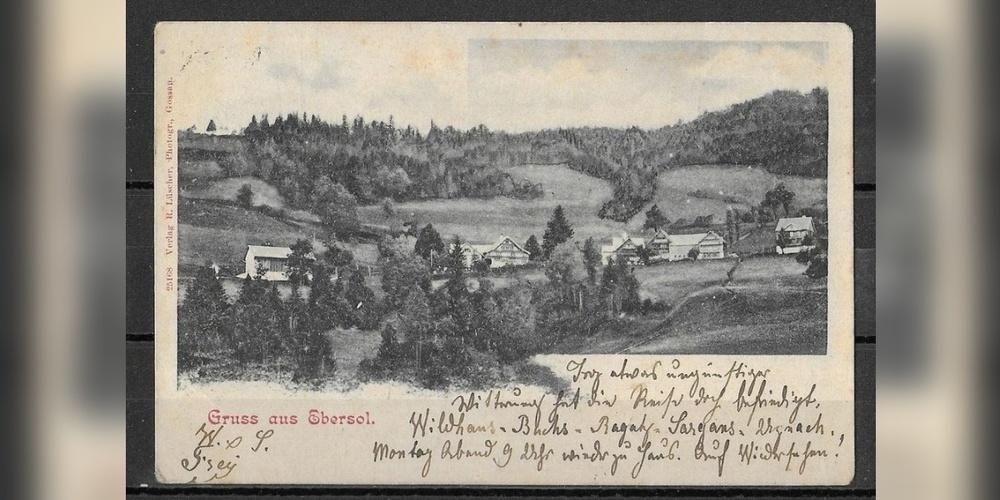 25168 Verlag R. Lüscher, Photogr., Gossau.
Gruss aus Ebersol.
Trotz etwas ungünstiger
Witterung hat die Reise doch befriedigt.
Wildhaus - Buchs - Ragatz - Sargans - Uznach.,
Montag Abend 9 Uhr wieder zu Haus. Auf Wiedersehen.